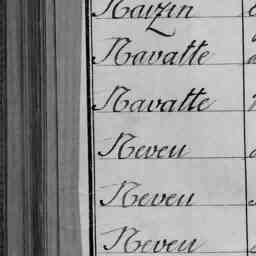 Naizin
Navatte
Navatte
Neveu
Neveu
Neveu